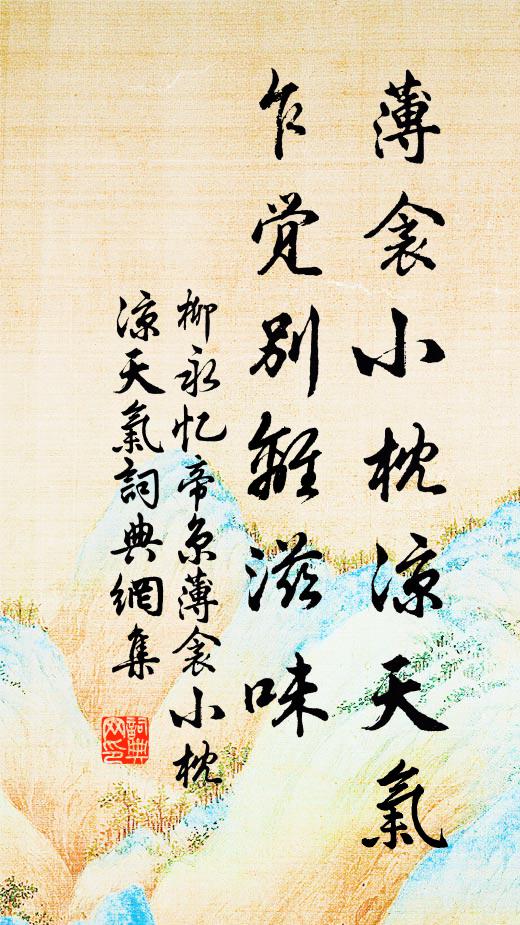 薄衾小枕凉天氣
乍覚別離滋味
柳永忆帝京薄衾小枕
凉天氣詞典網集
詞典
网印